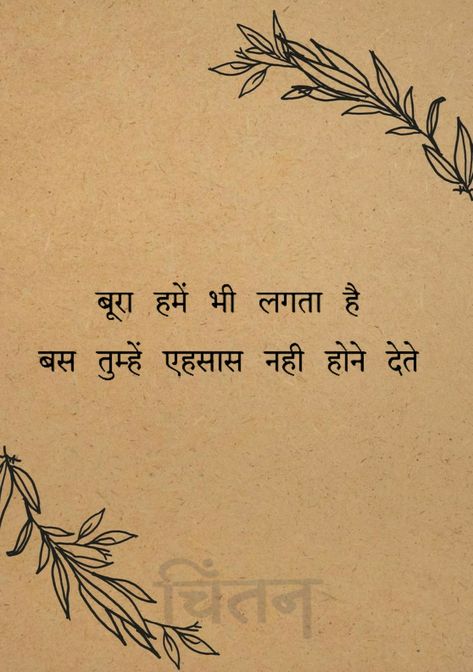 बूरा हमें भी लगता है
बस तुम्हें एहसास नही होने देते
चिंतन